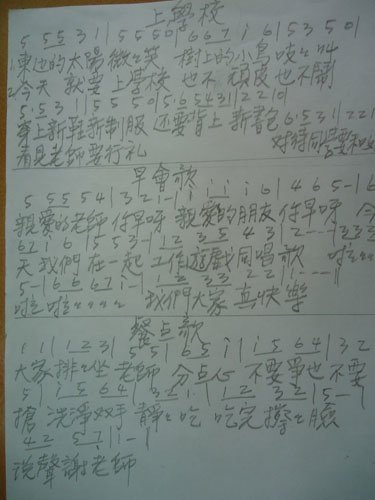 上學校
5 5 5 3 1 | 5 5 5 0 | 6 6 7 i 6 | 5 3 5 0 |
1.東边的太陽微々笑 樹上的小鳥吱々叫
2.今天 就要上學校 也不頑皮也不鬧
5·5 3 1 | 5 5 5 0 | 5·6 5 4 3 1 | 2 2 1 0 |
穿上新鞋新制服 还要背上新書包 6·5 3 1 | 2 2 1
看見老師要行礼 对待同学要和
早會歌
5 5 5 5 4 | 3 2 1 - | i i i i 6 | 4 6 5 - | 6
親愛的老師 你早呀 親愛的朋友 你早呀 今
6 7 i 6 | 5 5 3 - | 1 2 3 5 4 3 | 2 - - - | 3 3 3
天我們在一起 工作遊戲同唱歌 啦
5 - | 6 6 6 7 i - | 1 2 3 3 2 2 | 1 - - - |
啦 啦 我們大家真快樂
餐点歌
1 1 | 1 2 3 | 5 5 | 6 5 i | i 5 6 4 | 3 2
大家排々坐 老師 分点心 不要爭也不要
5 | i 5 6 4 | 3 2 1 · | 1 2 3 2 | 5 - |
搶 洗淨双手 靜々吃 吃完擦々臉
4 2 5 7 | 1 - |
說聲謝老師